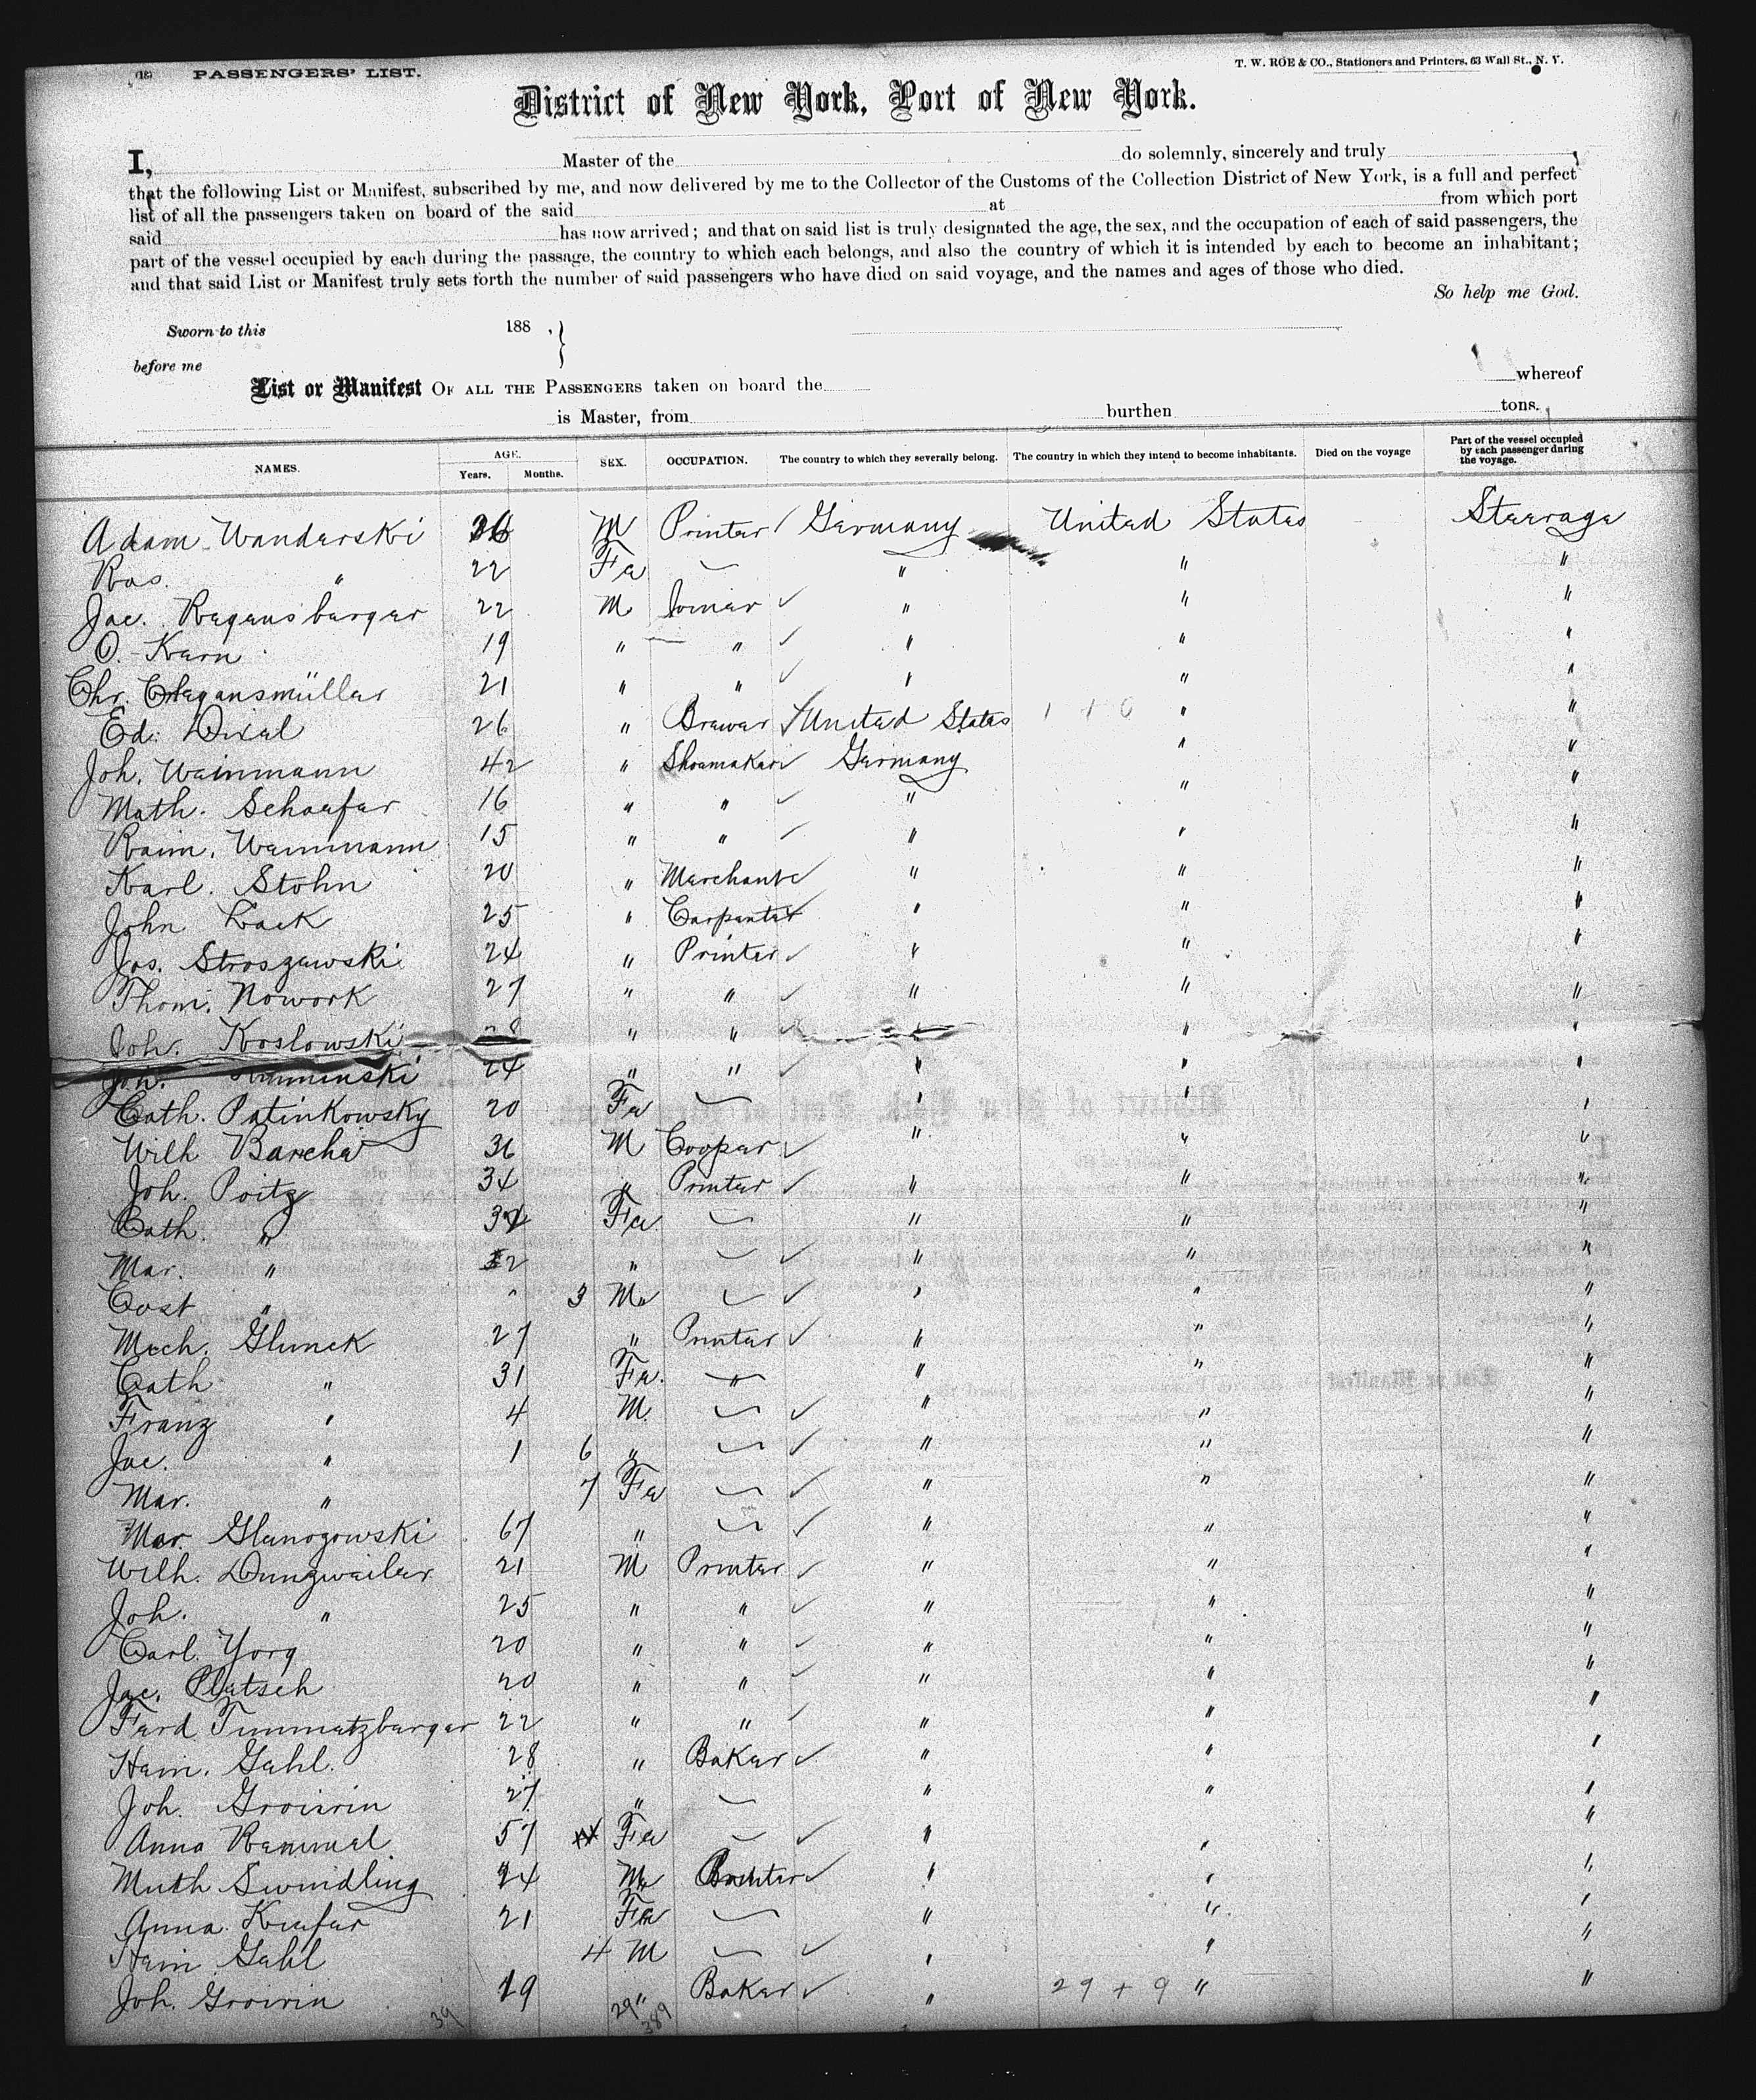 (18) PASSENGERS' LIST.
T. W. ROE & CO., Stationers and Printers, 63 Wall St., N. Y.
District of New York, Port of New York.
I, Master of the do solemnly, sincerely and truly
that the following List or Manifest, subscribed by me, and now delivered by me to the Collector of the Customs of the Collection District of New York, is a full and perfect
list of all the passengers taken on board of the said at from which port
said has now arrived; and that on said list is truly designated the age, the sex, and the occupation of each of said passengers, the
part of the vessel occupied by each during the passage, the country to which each belongs, and also the country of which it is intended by each to become an inhabitant;
and that said List or Manifest truly sets forth the number of said passengers who have died on said voyage, and the names and ages of those who died.
So help me God.
Sworn to this 188 , }
before me
List or Manifest OF ALL THE PASSENGERS taken on board the whereof
is Master, from burthen tons.
NAMES. AGE. Years. Months. SEX. OCCUPATION. The country to which they severally belong. The country in which they intend to become inhabitants. Died on the voyage Part of the vessel occupied by each passenger during the voyage.
Adam Wanderski 26 M Printer Germany United States Steerage
Ros. " 22 Fe — " " "
Jac. Regensburger 22 M Joiner " " "
O. Kern 19 " " " " "
Chr. 21 " " " " "
Ed. 26 " Brewer United States 1 1 0 " "
Joh. Weinmann 42 " Shoemaker Germany " "
Math. Schaefer 16 " " " " "
Reim. Weinmann 15 " " " " "
Karl. Stohn 20 " Merchant " " "
John 25 " Carpenter " " "
Jos. Stroszewski 24 " Printer " " "
Thom. Nowork 27 " " " " "
Joh. Koslowski 28 " " " " "
Joh. Kaminski 24 " " " " "
Cath. Patinkowsky 20 Fe — " " "
Wilh 36 M Cooper " " "
Joh. Poitz 34 " Printer " " "
Cath. " 32 Fe — " " "
Mar. " " — " " "
Cost " " 3 M — " " "
Mich. Glunek 27 " Printer " " "
Cath " 31 Fe. — " " "
Franz " 4 M. — " " "
Jac. " 1 6 " — " " "
Mar. " 7 Fe — " " "
Mar. Glunogowski 67 " — " " "
Wilh. Dungweiler 21 M Printer " " "
Joh. " 25 " " " " "
Carl. Yorg 20 " " " " "
Jac. Pletsch 20 " " " " "
Ferd Timmetzberger 22 " " " " "
Hein. Gehl. 28 " Baker " " "
Joh. Groivin 27 " — " " "
Anna Remmel 57 Fe — " " "
Math Swindling 24 M " " "
Anna Kiefer 21 Fe — " " "
Hein Gehl 4 M — " " "
Joh. Groivin 19 " Baker " 29 + 9 " "
39 29 389